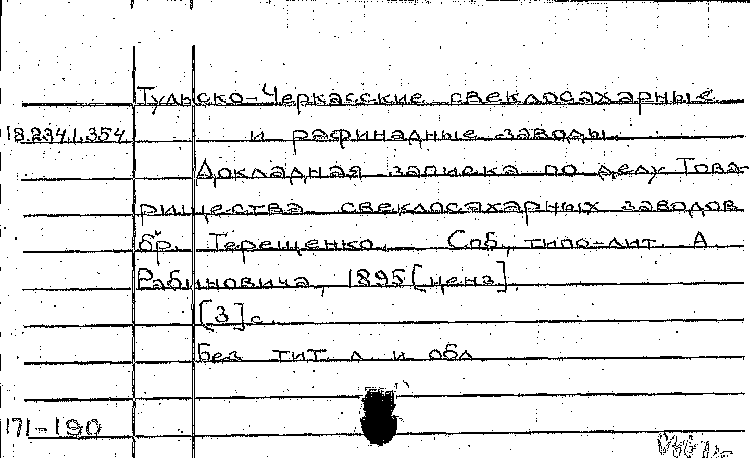 Тульско-Черкасские свеклосахарные
18.234.1.354 и рафинадные заводы.
Докладная записка по делу Това-
рищества свеклосахарных заводов
бр. Терещенко. Спб, типо-лит. А.
Рабиновича, 1895 [ценз].
[3] с.
Без тит. л. и обл.
171-190